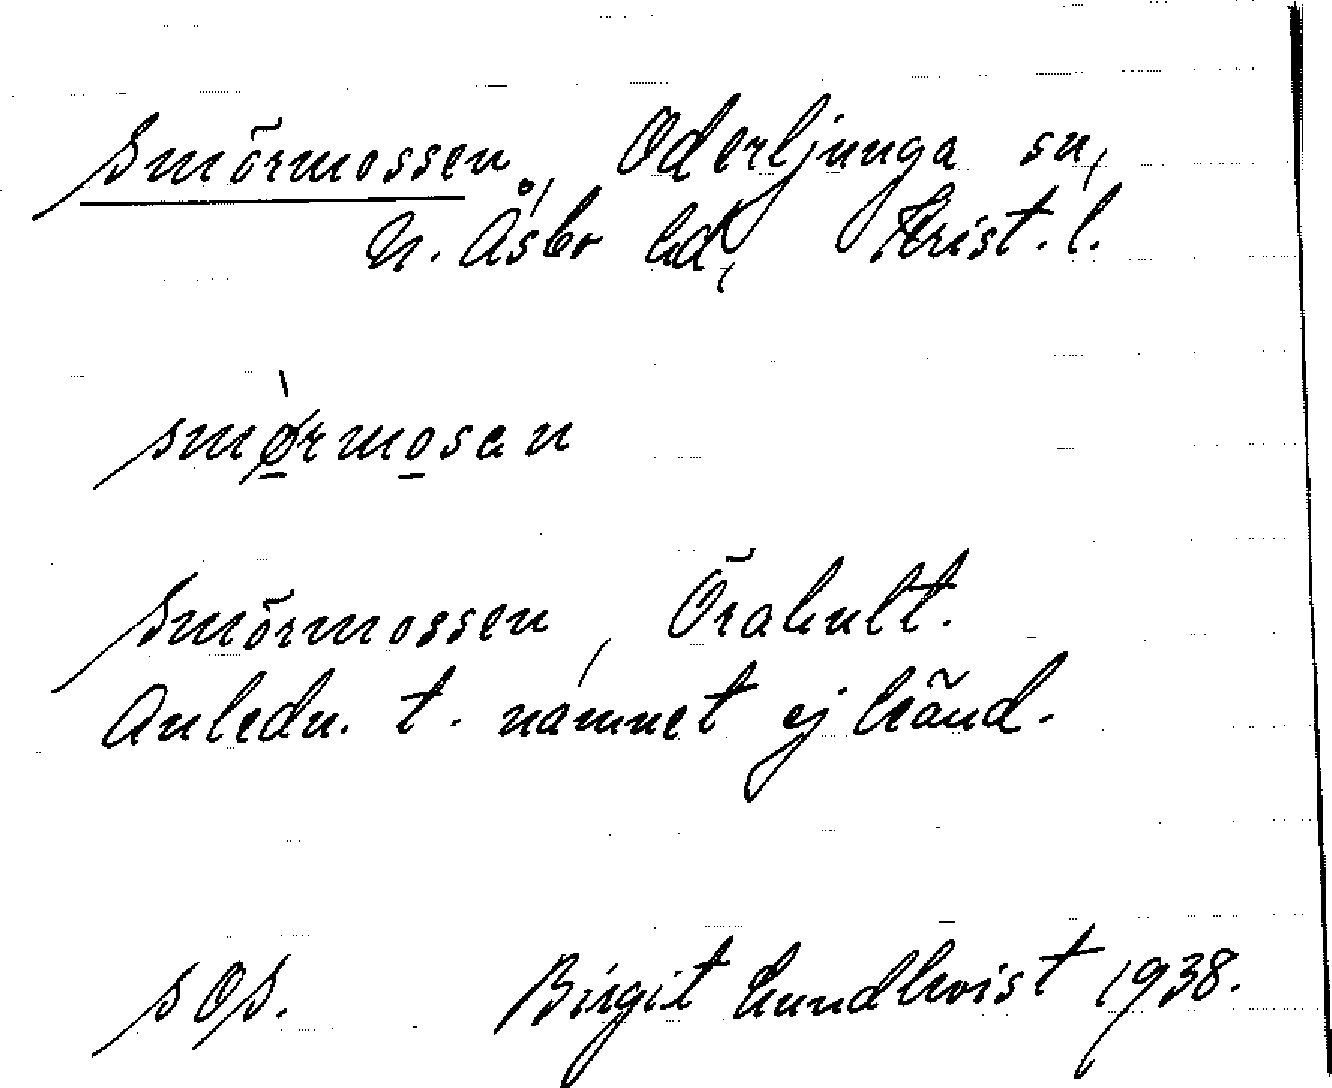 Smörmossen, Oderljunga sn,
N. Åsbo hd, Krist. l.
smø̀rmosan
Smörmossen, Örahult.
Anledn. t. namnet ej känd.
s Os. Birgit Lundkvist 1938.